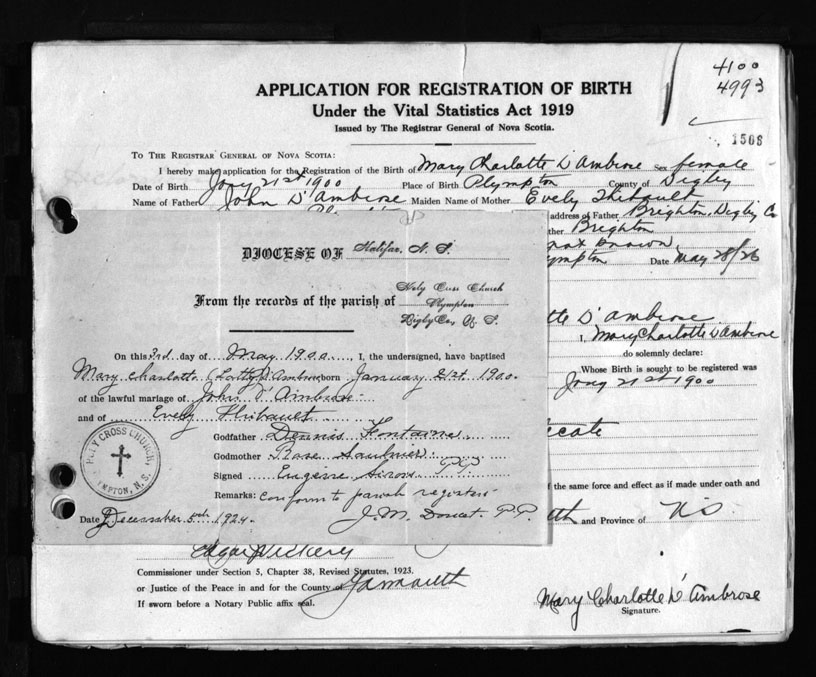 4100
4993
1568
APPLICATION FOR REGISTRATION OF BIRTH
Under the Vital Statistics Act 1919
Issued by The Registrar General of Nova Scotia.
TO THE REGISTRAR GENERAL OF NOVA SCOTIA:
I hereby make application for the Registration of the Birth of Mary Charlotte D'Ambrose Sex female
Date of Birth Jany 21st 1900 Place of Birth Plympton County of Digby
Name of Father John D'Ambrose Maiden Name of Mother Evely Thibault
address of Father Brighton, Digby Co
ther Brighton
not known
ympton Date May 28/26
tte D'ambrose
, Mary Charlotte D'Ambrose
do solemnly declare:
Whose Birth is sought to be registered was
Jany 21st 1900
icate
f the same force and effect as if made under oath and
th and Province of N.S.
DIOCESE OF Halifax, N. S.
From the records of the parish of Holy Cross Church
Plympton
Digby Co, N. S.
On this 3rd day of May 1900, I, the undersigned, have baptised
Mary Charlotte (Lotty) D'Ambrose born January 21st 1900
of the lawful marriage of John D'Ambrose
and of Evely Thibault
Godfather Dennis Fontaine
Godmother Rose Saulnier
Signed Eugène PP
Remarks: conform to parish register
Date December 5th 1924. J.M. Doucet. P.P.
HOLY CROSS CHURCH,
PLYMPTON, N.S.
Edgar Vickery
Commissioner under Section 5, Chapter 38, Revised Statutes, 1923.
or Justice of the Peace in and for the County of Yarmouth
If sworn before a Notary Public affix seal.
Mary Charlotte D'Ambrose
Signature.